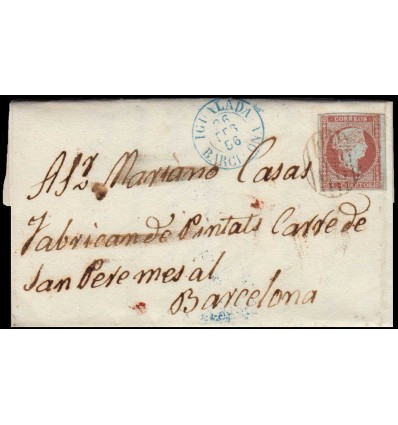 IGUALADA
26
56
BARCELONA
CORREOS
4 CUARTOS
A Sr. Mariano Casas
Fabrican de Pintats Carre de
San Pere mes al
Barcelona